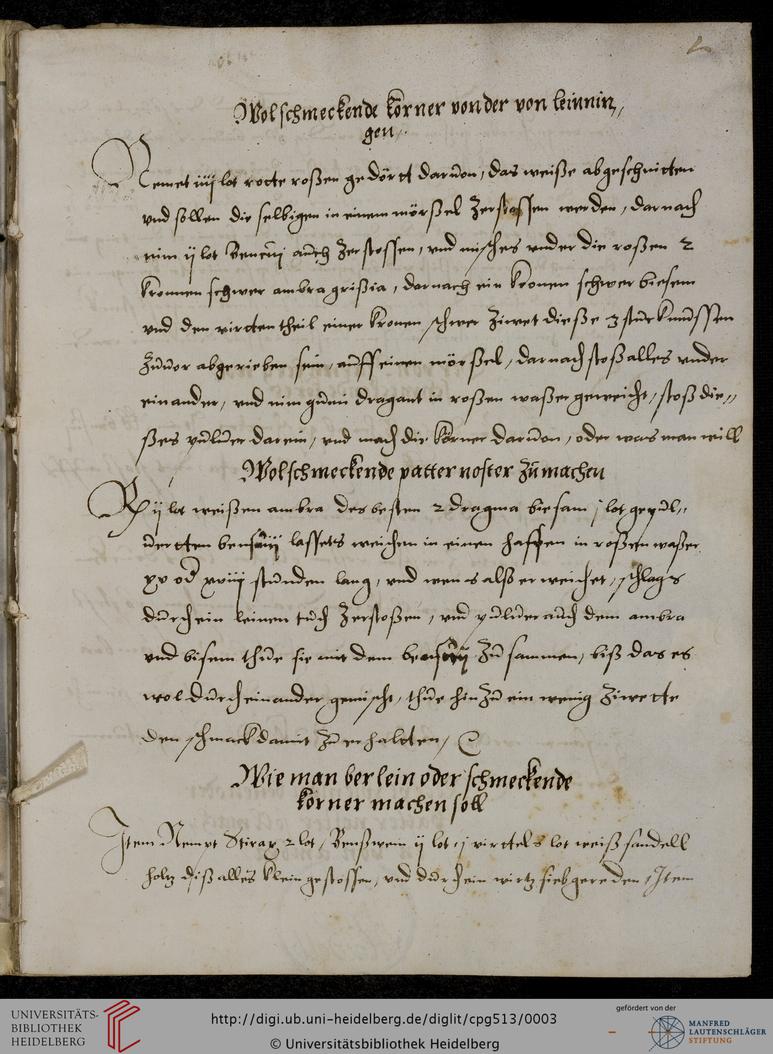 Wolschmeckende körner von der von leinnin,,
gen,.
Nemet iiij lot rotte roßen gedörtt daruon, das weiße abgeschnitten
vnd sollen die selbigen in einem mörßel zerstossen werden, darnach
nim ij lot auch zerstossen, vnd misches vnder die roßen 2
kronnen schwer ambra grißia, darnach ein kronen schwer biesem
vnd den virtten theil einer kronen schwer ziwet dieße 3 stuck mussen
zuuor abgerieben sein, auff einen mörßel, darnach stoß alles vnder
einander, vnd nim gumi dragant in roßen waßer geweicht, stoß die,,
ßes puluer darein, vnd mach die körner daruon, oder was man will
Wolschmeckende patter noster zu machen
ij lot weißen ambra des besten 2 dragma biesam j lot gepul,,
uertten lassets weichen in einen haffen in roßen waßer
xv od xviij stunden lang, vnd wen es alß erweichet, schlags
durch ein leinen tuch zerstoßen, vnd puluer auch dem ambra
vnd bisem thue sie mit dem zu sammen, biß das es
wol durcheinander gemischt, thue hinzu ein wenig ziwette
den schmack damit zu erhaltten,
Wie man berlein oder schmeckende
körner machen soll
Item Nempt Stirax 2 lot, ij lot, j virttels lot weiß sandell
holtz diß alles klein gestossen, vnd durch ein wirtz sieb gereden, Item
UNIVERSITÄTS-
BIBLIOTHEK
HEIDELBERG
http://digi.ub.uni-heidelberg.de/diglit/cpg513/0003
© Universitätsbibliothek Heidelberg
gefördert von der
MANFRED
LAUTENSCHLÄGER
STIFTUNG